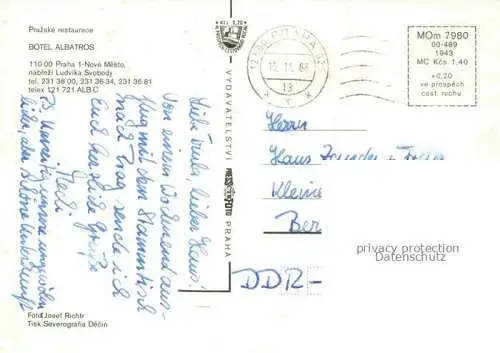 Pražské restaurace
BOTEL ALBATROS
110 00 Praha 1-Nové Město,
nábřeží Ludvíka Svobody
tel. 231 36 00, 231 36 34, 231 36 81
telex 121 721 ALB C
Liebe Traudi, lieber Hans!
Von einem Wochenendaus-
flug mit dem Stammtisch
nach Prag sende ich
Euch herzliche Grüße
Heidi
PS Umseitig unsere ungewöhn-
liche, aber schöne Unterkunft
Foto Josef Richtr
Tisk Severografia Děčín
VYDAVATELSTVÍ
PRESSFOTO
PRAHA
PRAHA
13
MOm 7980
00-489
1943
MC Kčs 1,40
+0,20
ve prospěch
cest ruchu
Herrn
Hans
Kleine
Ber
DDR-
privacy protection
Datenschutz